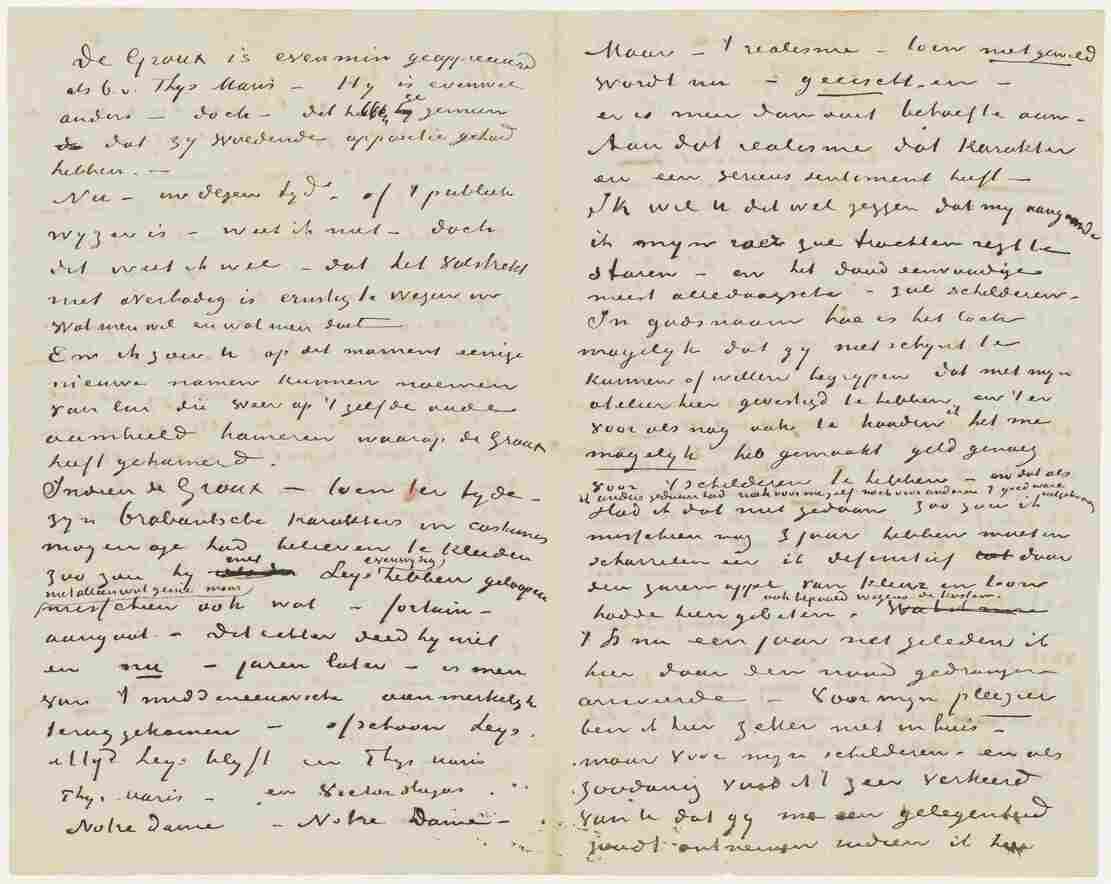 De Groux is evenmin geapprecieerd
als b.v. Thys Maris – Hy is evenwel
anders – doch – dit hebben zy gemeen
dat zy woedende oppositie gehad
hebben. –
Nu – in dezen tyd – of 't publiek
wyzer is – weet ik niet – doch
dit weet ik wel – dat het volstrekt
niet overbodig is ernstig te wezen in
wat men wil en wat men doet
En ik zou U op dit moment eenige
nieuwe namen kunnen noemen
van lui die weer op 't zelfde oude
aambeeld hameren waarop de Groux
heeft gehamerd.
Indien de Groux – toen ter tyde –
zyn Brabantsche karakters in costumes
moyen age had believen te kleeden
zoo zou hy met Leys evenwydig hebben geloopen
niet alleen wat genie maar
misschien ook wat – fortuin –
aangaat. – Dit echter deed hy niet
en nu – jaren later – is men
van 't middeneeuwsche aanmerkelyk
teruggekomen – ofschoon Leys
altyd Leys blyft en Thys Maris
Thys Maris – en Victor Hugos
Notre Dame – Notre Dame –
Maar – 't realisme – toen niet gewild
wordt nu – geeischt en –
er is meer dan ooit behoefte aan.
Aan dat realisme dat karakter
en een serieus sentiment heeft –
Ik wil U dit wel zeggen dat my aangaande
ik myn koers zal trachten regt te
sturen – en het dood eenvoudige
meest alledaagsche – zal schilderen –
In godsnaam hoe is het toch
mogelyk dat gy niet schynt te
kunnen of willen begrypen dat met myn
atelier hier gevestigd te hebben en 't er
voor als nog ook te houden ik het me
mogelyk heb gemaakt geld genoeg
voor 't schilderen te hebben – en dat als
ik anders gedaan had noch voor my zelf noch voor anderen 't goed ware
Had ik dat niet gedaan zoo zou ik
misschien nog 3 jaar hebben moeten
scharrelen eer ik definitief door
den zuren appel van kleur en toon
ook bepaald wegens de kosten.
hadde heen gebeten.
't Is nu een jaar net geleden ik
hier door den nood gedrongen
arriveerde – Voor myn pleizier
ben ik hier zeker niet in huis –
maar voor myn schilderen – en als
zoodanig vind ik 't zeer verkeerd
van U dat gy me een gelegenheid
zoudt ontnemen indien ik